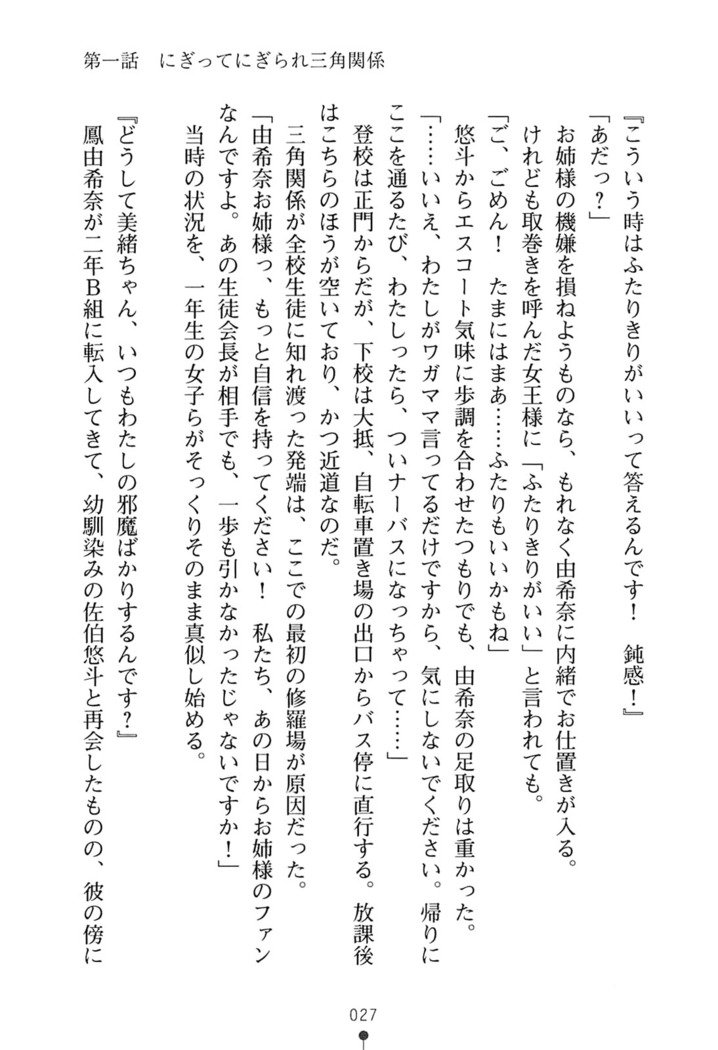 第一話　にぎってにぎられ三角関係
『こういう時はふたりきりがいいって答えるんです！　鈍感！』
「あだっ？」
　お姉様の機嫌を損ねようものなら、もれなく由希奈に内緒でお仕置きが入る。
　けれども取巻きを呼んだ女王様に「ふたりきりがいい」と言われても。
「ご、ごめん！　たまにはまあ……ふたりもいいかもね」
　悠斗からエスコート気味に歩調を合わせたつもりでも、由希奈の足取りは重かった。
「……いいえ、わたしがワガママ言ってるだけですから、気にしないでください。帰りに
ここを通るたび、わたしったら、ついナーバスになっちゃって……」
　登校は正門からだが、下校は大抵、自転車置き場の出口からバス停に直行する。放課後
はこちらのほうが空いており、かつ近道なのだ。
　三角関係が全校生徒に知れ渡った発端は、ここでの最初の修羅場が原因だった。
「由希奈お姉様っ、もっと自信を持ってください！　私たち、あの日からお姉様のファン
なんですよ。あの生徒会長が相手でも、一歩も引かなかったじゃないですか！」
　当時の状況を、一年生の女子らがそっくりそのまま真似し始める。
『どうして美緒ちゃん、いつもわたしの邪魔ばかりするんです？』
　鳳由希奈が二年Ｂ組に転入してきて、幼馴染みの佐伯悠斗と再会したものの、彼の傍に
027